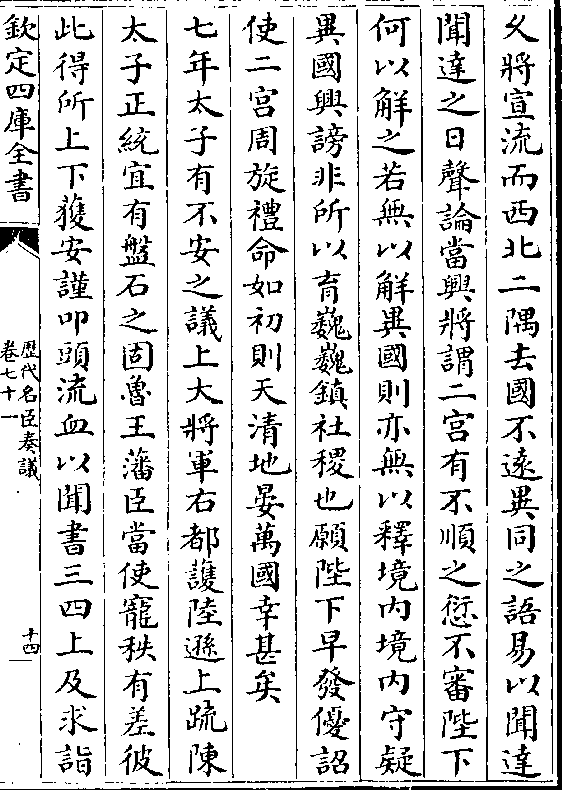 久將宣流而西北二隅去國不遠異同之語易以聞達
聞達之日聲論當興將謂二宫有不順之愆不審陛下
何以解之若無以解異國則亦無以釋境内境内守疑
異國興謗非所以育巍巍鎮社稷也願陛下早發優詔
使二宫周旋禮命如初則天清地晏萬國幸甚矣
七年太子有不安之議上大將軍右都護陸遜上疏陳
太子正統宜有盤石之固魯王藩臣當使寵秩有差彼
此得所上下獲安謹叩頭流血以聞書三四上及求詣
欽定四庫全書
歷代名臣奏議
卷七十一
十四